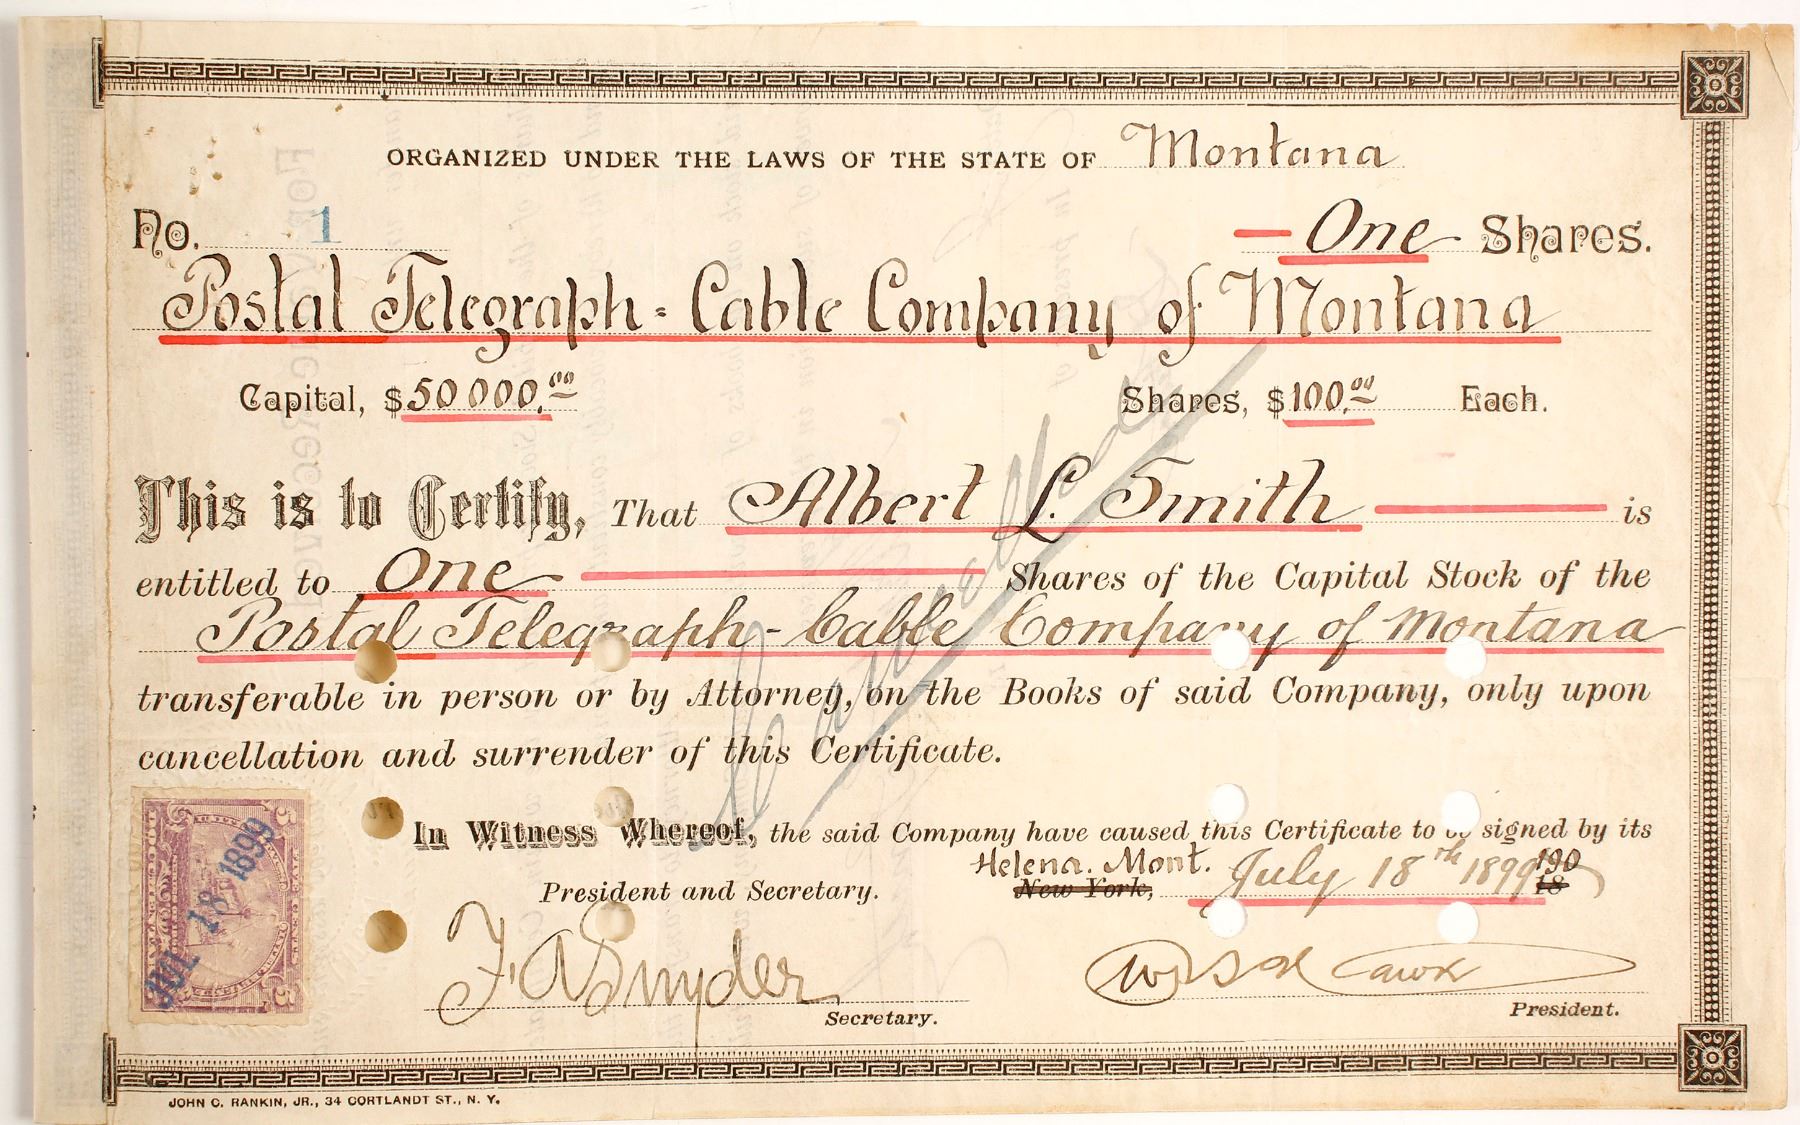 ORGANIZED UNDER THE LAWS OF THE STATE OF Montana
No. 1 One Shares.
Postal Telegraph-Cable Company of Montana
Capital, $50000.00 Shares, $100.00 Each.
This is to Certify, That Albert L. Smith is
entitled to One Shares of the Capital Stock of the
Postal Telegraph-Cable Company of Montana
transferable in person or by Attorney, on the Books of said Company, only upon
cancellation and surrender of this Certificate.
Cancelled
In Witness Whereof, the said Company have caused this Certificate to be signed by its
Helena. Mont.
President and Secretary. New York, July 18th 1899 190 18
JUL 18 1899
F. A Snyder
Secretary. President.
JOHN C. RANKIN, JR., 34 CORTLANDT ST., N. Y.